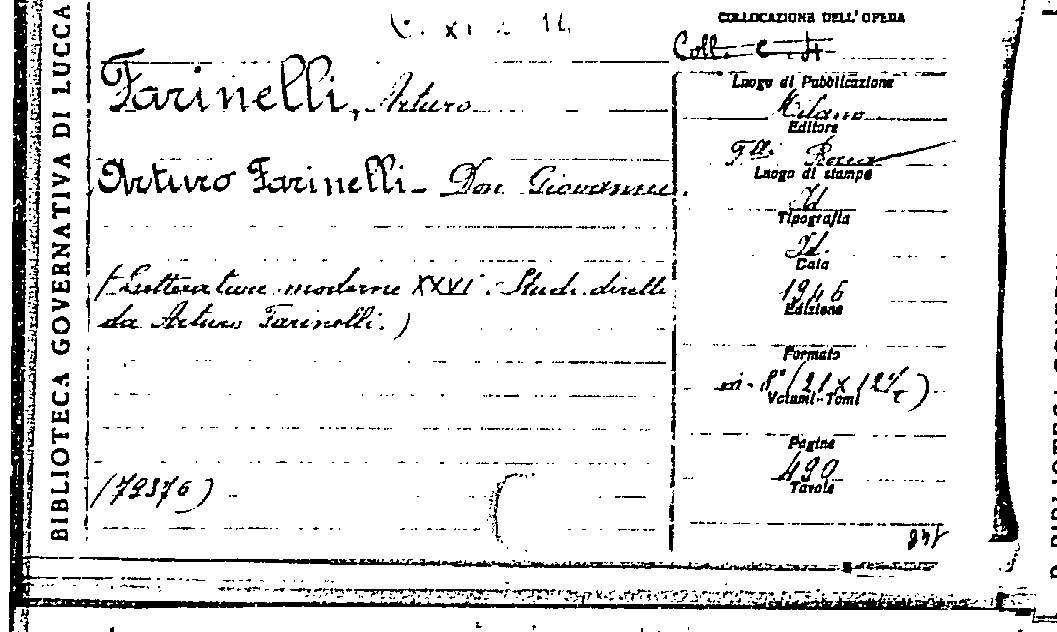 BIBLIOTECA GOVERNATIVA DI LUCCA
C. XI
Farinelli, Arturo
Arturo Farinelli - Don Giovanni.
(Letterature moderne XXVI. Studi diretti
da Arturo Farinelli.)
(72376)
COLLOCAZIONE DELL'OPERA
Coll. C. 4
Luogo di Pubblicazione
Milano
Editore
F.lli Bocca
Luogo di stampa
Id
Tipografia
Id.
Data
1946
Edizione
Formato
in-8° (21 x 12 ½)
Volumi-Tomi
Pagine
490
Tavole